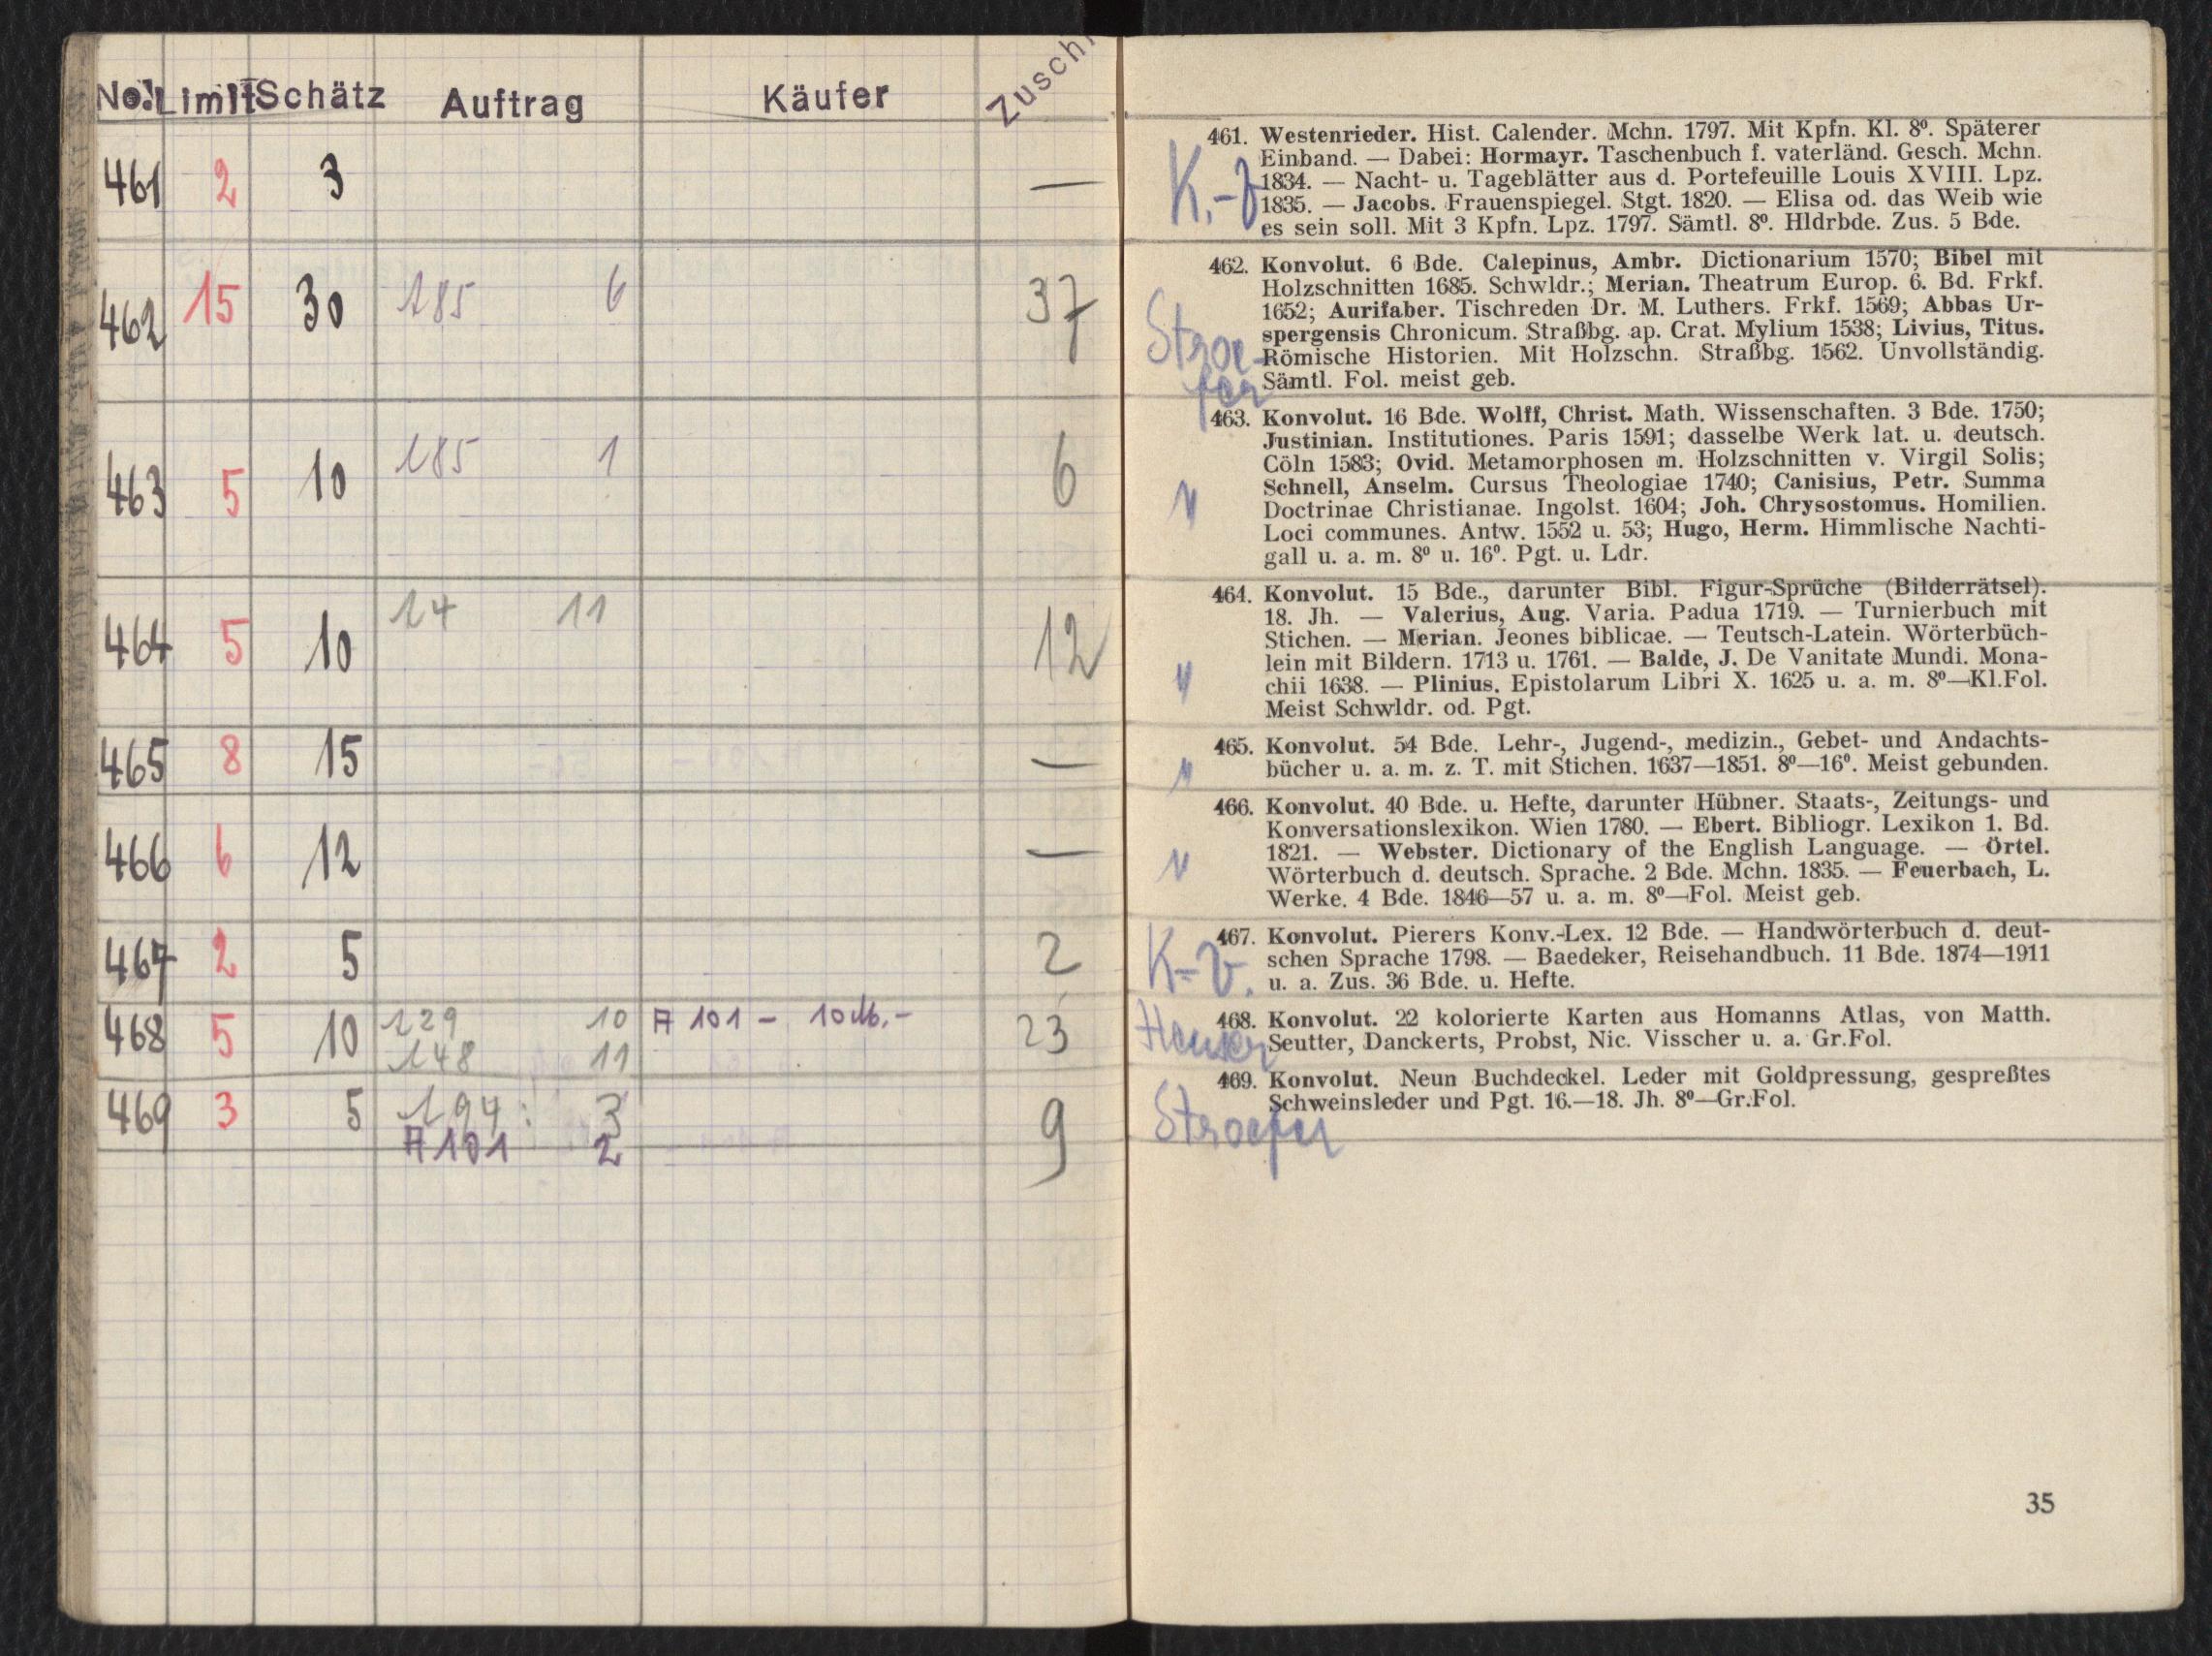 No. Limit Schätz Auftrag Käufer Zuschl
461 2 3 —
462 15 30 185 6 37
463 5 10 185 1 6
464 5 10 14 11 12
465 8 15 —
466 6 12 —
467 2 5 2
468 5 10 129 10 A 101 – 10 M.– 23
148 11
469 3 5 194: 3 9
A 101 2
461. Westenrieder. Hist. Calender. Mchn. 1797. Mit Kpfn. Kl. 8º. Späterer
Einband. — Dabei: Hormayr. Taschenbuch f. vaterländ. Gesch. Mchn.
1834. — Nacht- u. Tageblätter aus d. Portefeuille Louis XVIII. Lpz.
1835. — Jacobs. Frauenspiegel. Stgt. 1820. — Elisa od. das Weib wie
es sein soll. Mit 3 Kpfn. Lpz. 1797. Sämtl. 8º. Hldrbde. Zus. 5 Bde.
462. Konvolut. 6 Bde. Calepinus, Ambr. Dictionarium 1570; Bibel mit
Holzschnitten 1685. Schwldr.; Merian. Theatrum Europ. 6. Bd. Frkf.
1652; Aurifaber. Tischreden Dr. M. Luthers. Frkf. 1569; Abbas Ur-
spergensis Chronicum. Straßbg. ap. Crat. Mylium 1538; Livius, Titus.
Römische Historien. Mit Holzschn. Straßbg. 1562. Unvollständig.
Sämtl. Fol. meist geb.
Stroe-
fer
463. Konvolut. 16 Bde. Wolff, Christ. Math. Wissenschaften. 3 Bde. 1750;
Justinian. Institutiones. Paris 1591; dasselbe Werk lat. u. deutsch.
Cöln 1583; Ovid. Metamorphosen m. Holzschnitten v. Virgil Solis;
Schnell, Anselm. Cursus Theologiae 1740; Canisius, Petr. Summa
Doctrinae Christianae. Ingolst. 1604; Joh. Chrysostomus. Homilien.
Loci communes. Antw. 1552 u. 53; Hugo, Herm. Himmlische Nachti-
gall u. a. m. 8º u. 16º. Pgt. u. Ldr.
464. Konvolut. 15 Bde., darunter Bibl. Figur-Sprüche (Bilderrätsel).
18. Jh. — Valerius, Aug. Varia. Padua 1719. — Turnierbuch mit
Stichen. — Merian. Jeones biblicae. — Teutsch-Latein. Wörterbüch-
lein mit Bildern. 1713 u. 1761. — Balde, J. De Vanitate Mundi. Mona-
chii 1638. — Plinius. Epistolarum Libri X. 1625 u. a. m. 8º—Kl.Fol.
Meist Schwldr. od. Pgt.
465. Konvolut. 54 Bde. Lehr-, Jugend-, medizin., Gebet- und Andachts-
bücher u. a. m. z. T. mit Stichen. 1637—1851. 8º—16º. Meist gebunden.
466. Konvolut. 40 Bde. u. Hefte, darunter Hübner. Staats-, Zeitungs- und
Konversationslexikon. Wien 1780. — Ebert. Bibliogr. Lexikon 1. Bd.
1821. — Webster. Dictionary of the English Language. — Örtel.
Wörterbuch d. deutsch. Sprache. 2 Bde. Mchn. 1835. — Feuerbach, L.
Werke. 4 Bde. 1846—57 u. a. m. 8º—Fol. Meist geb.
467. Konvolut. Pierers Konv.-Lex. 12 Bde. — Handwörterbuch d. deut-
schen Sprache 1798. — Baedeker, Reisehandbuch. 11 Bde. 1874—1911
u. a. Zus. 36 Bde. u. Hefte.
468. Konvolut. 22 kolorierte Karten aus Homanns Atlas, von Matth.
Seutter, Danckerts, Probst, Nic. Visscher u. a. Gr.Fol.
469. Konvolut. Neun Buchdeckel. Leder mit Goldpressung, gespreßtes
Schweinsleder und Pgt. 16.—18. Jh. 8º—Gr.Fol.
Stroefer
35